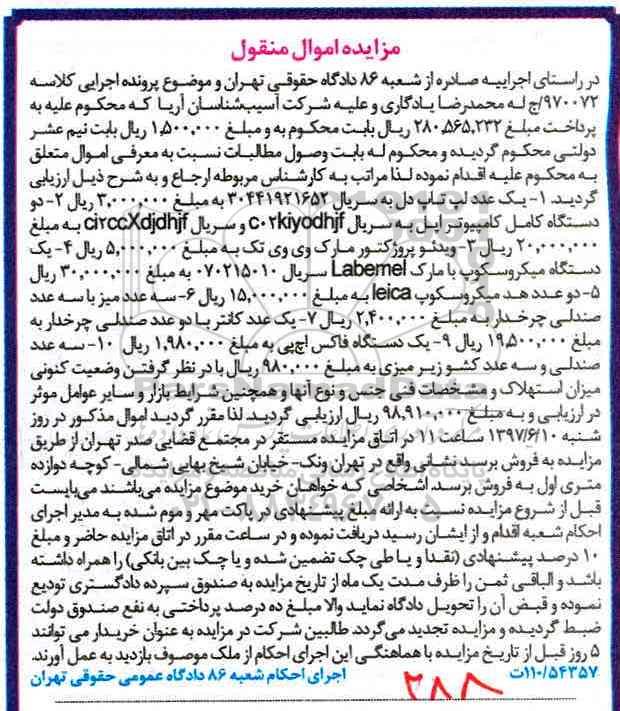 مزایده اموال منقول
در راستای اجراییه صادره از شعبه ۸۶ دادگاه حقوقی تهران و موضوع پرونده اجرایی کلاسه
۹۷۰۰۷۲/ج له محمدرضا یادگاری و علیه شرکت آسیب‌شناسان آریا که محکوم علیه به
پرداخت مبلغ ۲۸۰,۵۶۵,۲۳۲ ریال بابت محکوم به و مبلغ ۱,۵۰۰,۰۰۰ ریال بابت نیم عشر
دولتی محکوم گردیده و محکوم له بابت وصول مطالبات نسبت به معرفی اموال متعلق
به محکوم علیه اقدام نموده لذا مراتب به کارشناس مربوطه ارجاع و به شرح ذیل ارزیابی
گردید. ۱- یک عدد لپ تاپ دل به سریال ۳۰۴۴۱۹۲۱۶۵۲ به مبلغ ۳,۰۰۰,۰۰۰ ریال ۲- دو
دستگاه کامل کامپیوتر اپل به سریال c۰۲kiyodhjf و سریال ci۲ccXdjdhjf به مبلغ
۲۰,۰۰۰,۰۰۰ ریال ۳- ویدئو پروژکتور مارک وی وی تک به مبلغ ۵,۰۰۰,۰۰۰ ریال ۴- یک
دستگاه میکروسکوپ با مارک Labemel سریال ۰۷۰۲۱۵۰۱۰ به مبلغ ۳۰,۰۰۰,۰۰۰ ریال
۵- دو عدد هد میکروسکوپ leica به مبلغ ۱۵,۰۰۰,۰۰۰ ریال ۶- سه عدد میز با سه عدد
صندلی چرخدار به مبلغ ۲,۴۰۰,۰۰۰ ریال ۷- یک عدد کانتر با دو عدد صندلی چرخدار به
مبلغ ۱۹,۵۰۰,۰۰۰ ریال ۹- یک دستگاه فاکس اچ‌پی به مبلغ ۱,۹۸۰,۰۰۰ ریال ۱۰- سه عدد
صندلی و سه عدد کشو زیر میزی به مبلغ ۹۸۰,۰۰۰ ریال با در نظر گرفتن وضعیت کنونی
میزان استهلاک و مشخصات فنی جنس و نوع آنها و همچنین شرایط بازار و سایر عوامل موثر
در ارزیابی و به مبلغ ۹۸,۹۱۰,۰۰۰ ریال ارزیابی گردید. لذا مقرر گردید اموال مذکور در روز
شنبه ۱۳۹۷/۶/۱۰ ساعت ۱۱ در اتاق مزایده مستقر در مجتمع قضایی صدر تهران از طریق
مزایده به فروش برسد نشانی واقع در تهران ونک- خیابان شیخ بهایی شمالی- کوچه دوازده
متری اول به فروش برسد اشخاصی که خواهان خرید موضوع مزایده می‌باشند می‌بایست
قبل از شروع مزایده نسبت به ارائه مبلغ پیشنهادی در پاکت مهر و موم شده به مدیر اجرای
احکام شعبه اقدام و از ایشان رسید دریافت نموده و در ساعت مقرر در اتاق مزایده حاضر و مبلغ
۱۰ درصد پیشنهادی (نقدا و یا طی چک تضمین شده و یا چک بین بانکی) را همراه داشته
باشد و الباقی ثمن را ظرف مدت یک ماه از تاریخ مزایده به صندوق سپرده دادگستری تودیع
نموده و قبض آن را تحویل دادگاه نماید والا مبلغ ده درصد پرداختی به نفع صندوق دولت
ضبط گردیده و مزایده تجدید می‌گردد. طالبین شرکت در مزایده به عنوان خریدار می توانند
۵ روز قبل از تاریخ مزایده با هماهنگی این اجرای احکام از ملک موصوف بازدید به عمل آورند.
۱۱۰/۵۴۳۵۷ت اجرای احکام شعبه ۸۶ دادگاه عمومی حقوقی تهران
۲۸۸